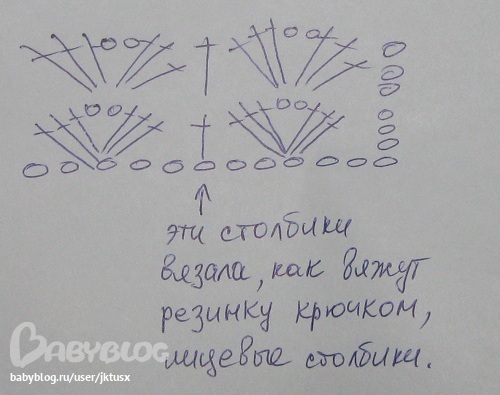 эти столбики
вязала, как вяжут
резинку крючком,
лицевые столбики.
BABYBLOG
babyblog.ru/user/jktusx